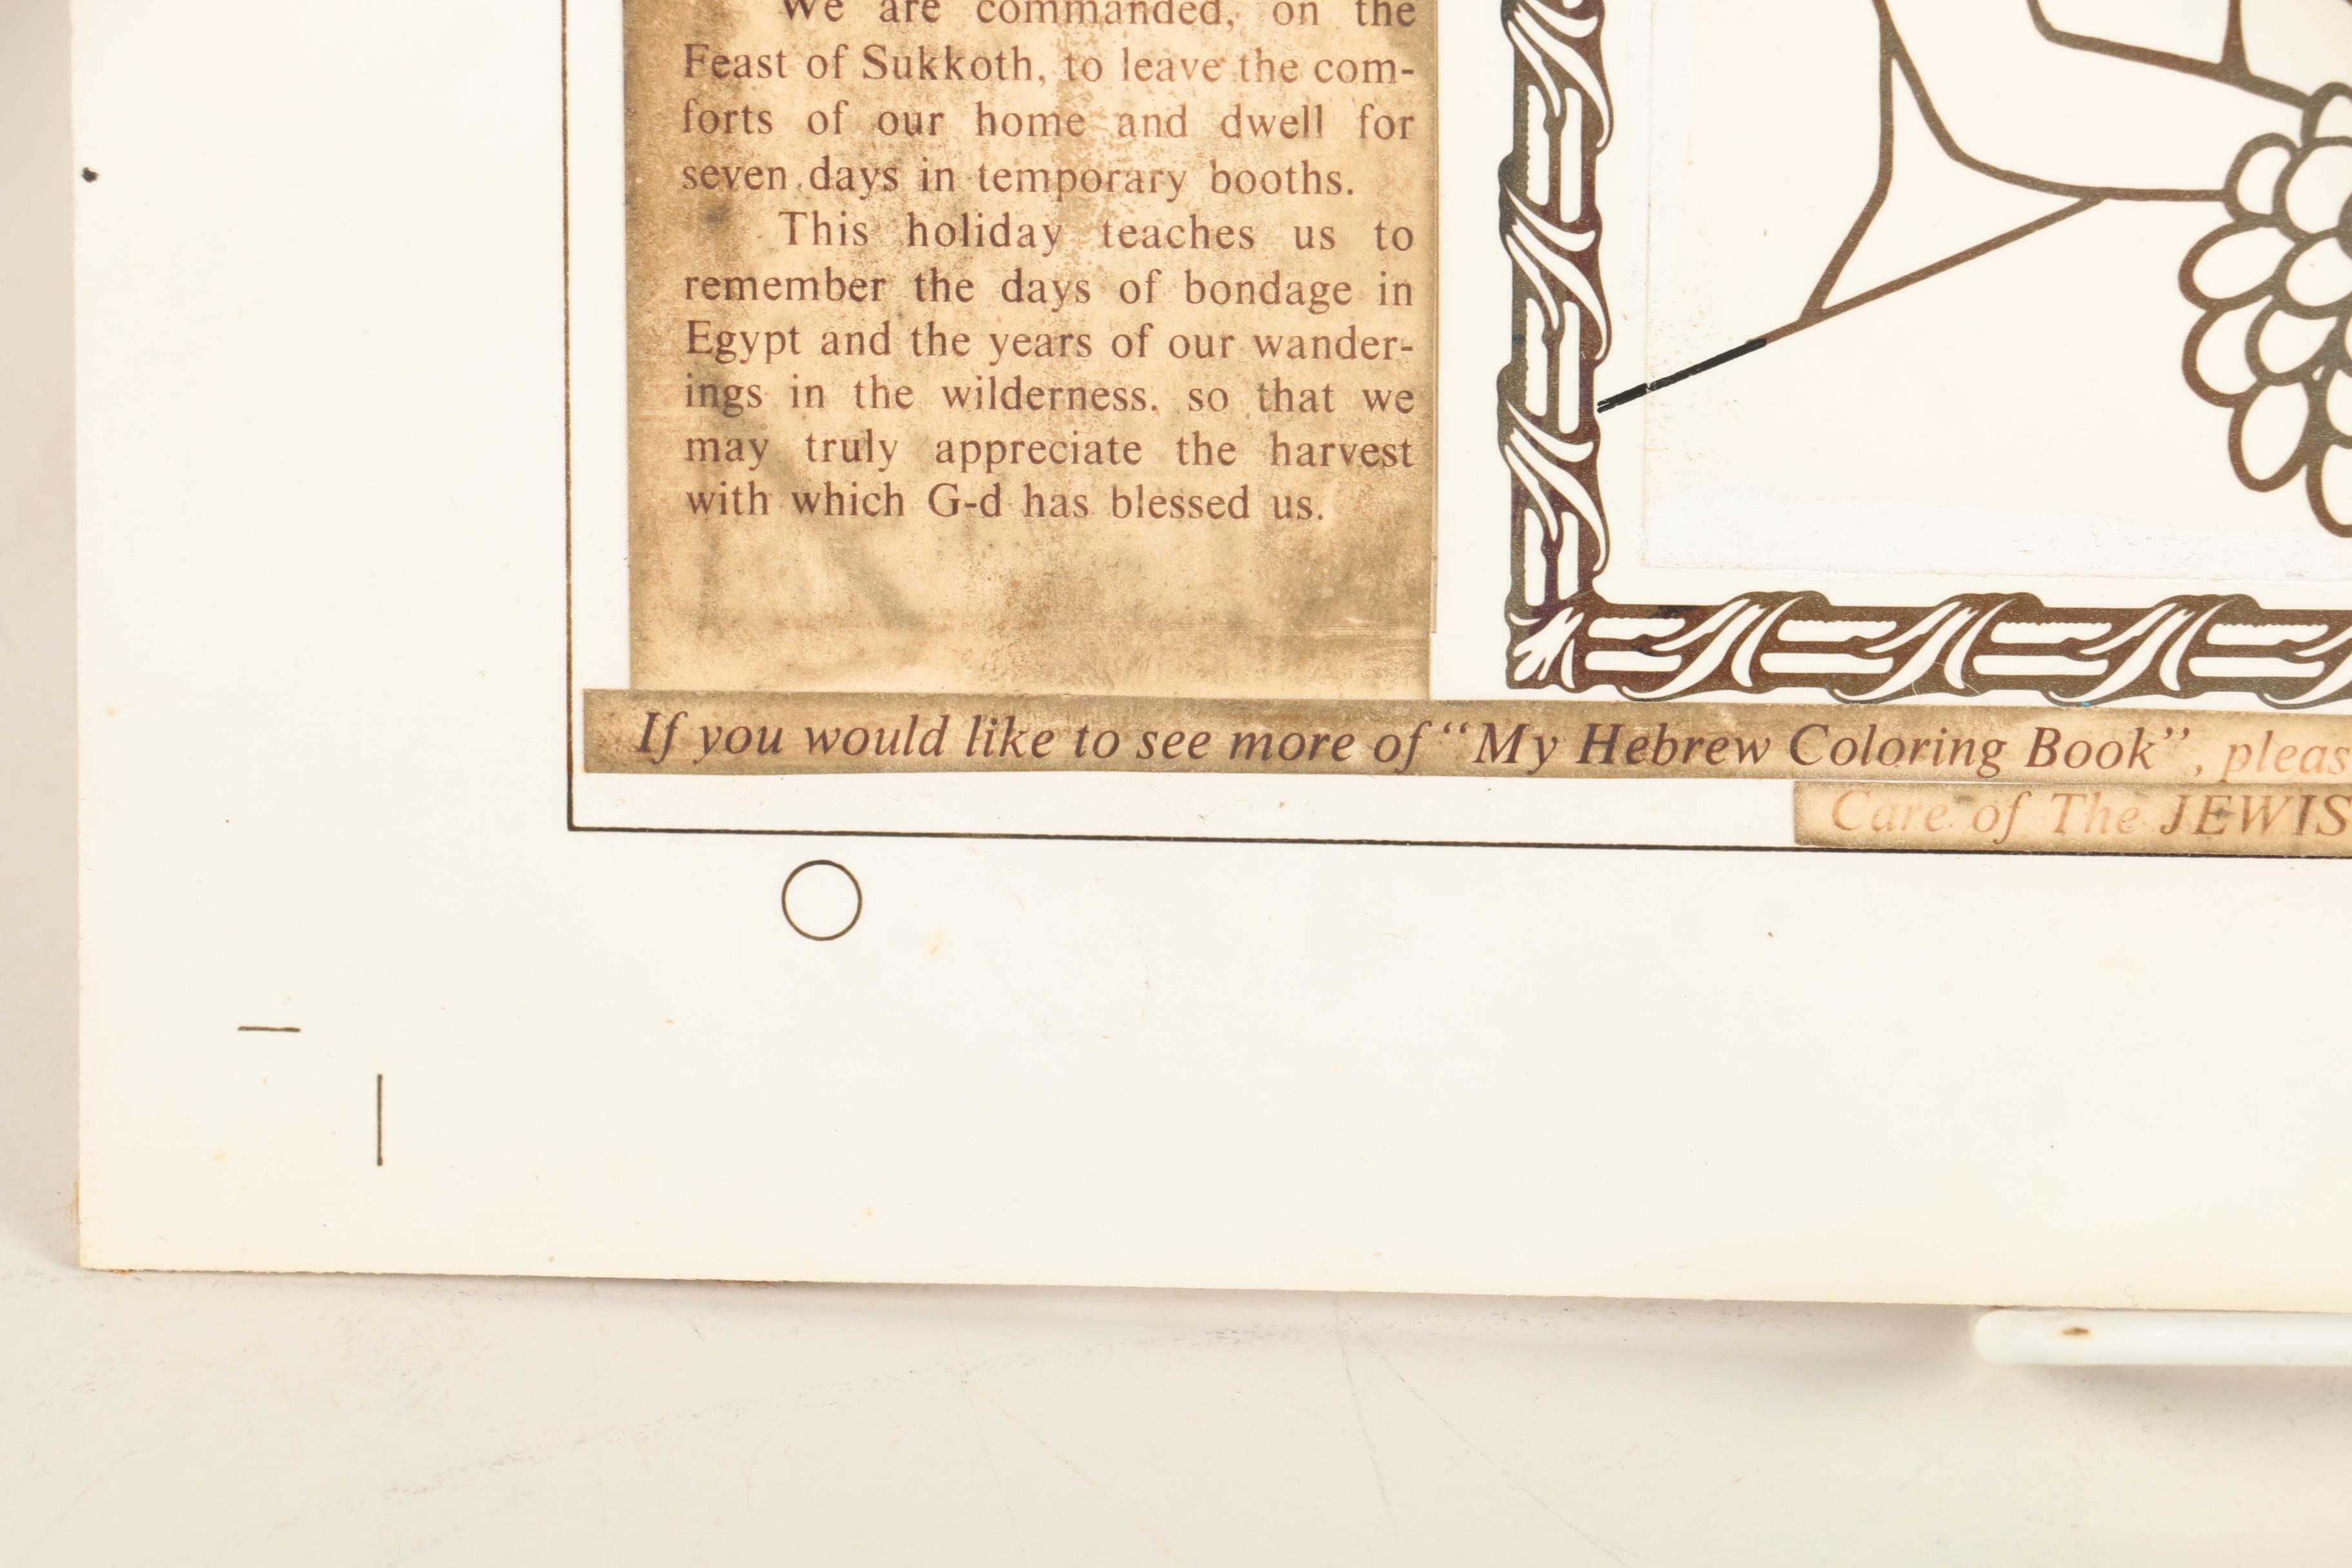 We are commanded, on the
Feast of Sukkoth, to leave the com-
forts of our home and dwell for
seven days in temporary booths.
This holiday teaches us to
remember the days of bondage in
Egypt and the years of our wander-
ings in the wilderness, so that we
may truly appreciate the harvest
with which G-d has blessed us.
If you would like to see more of “My Hebrew Coloring Book”, pleas
Care of The JEWIS